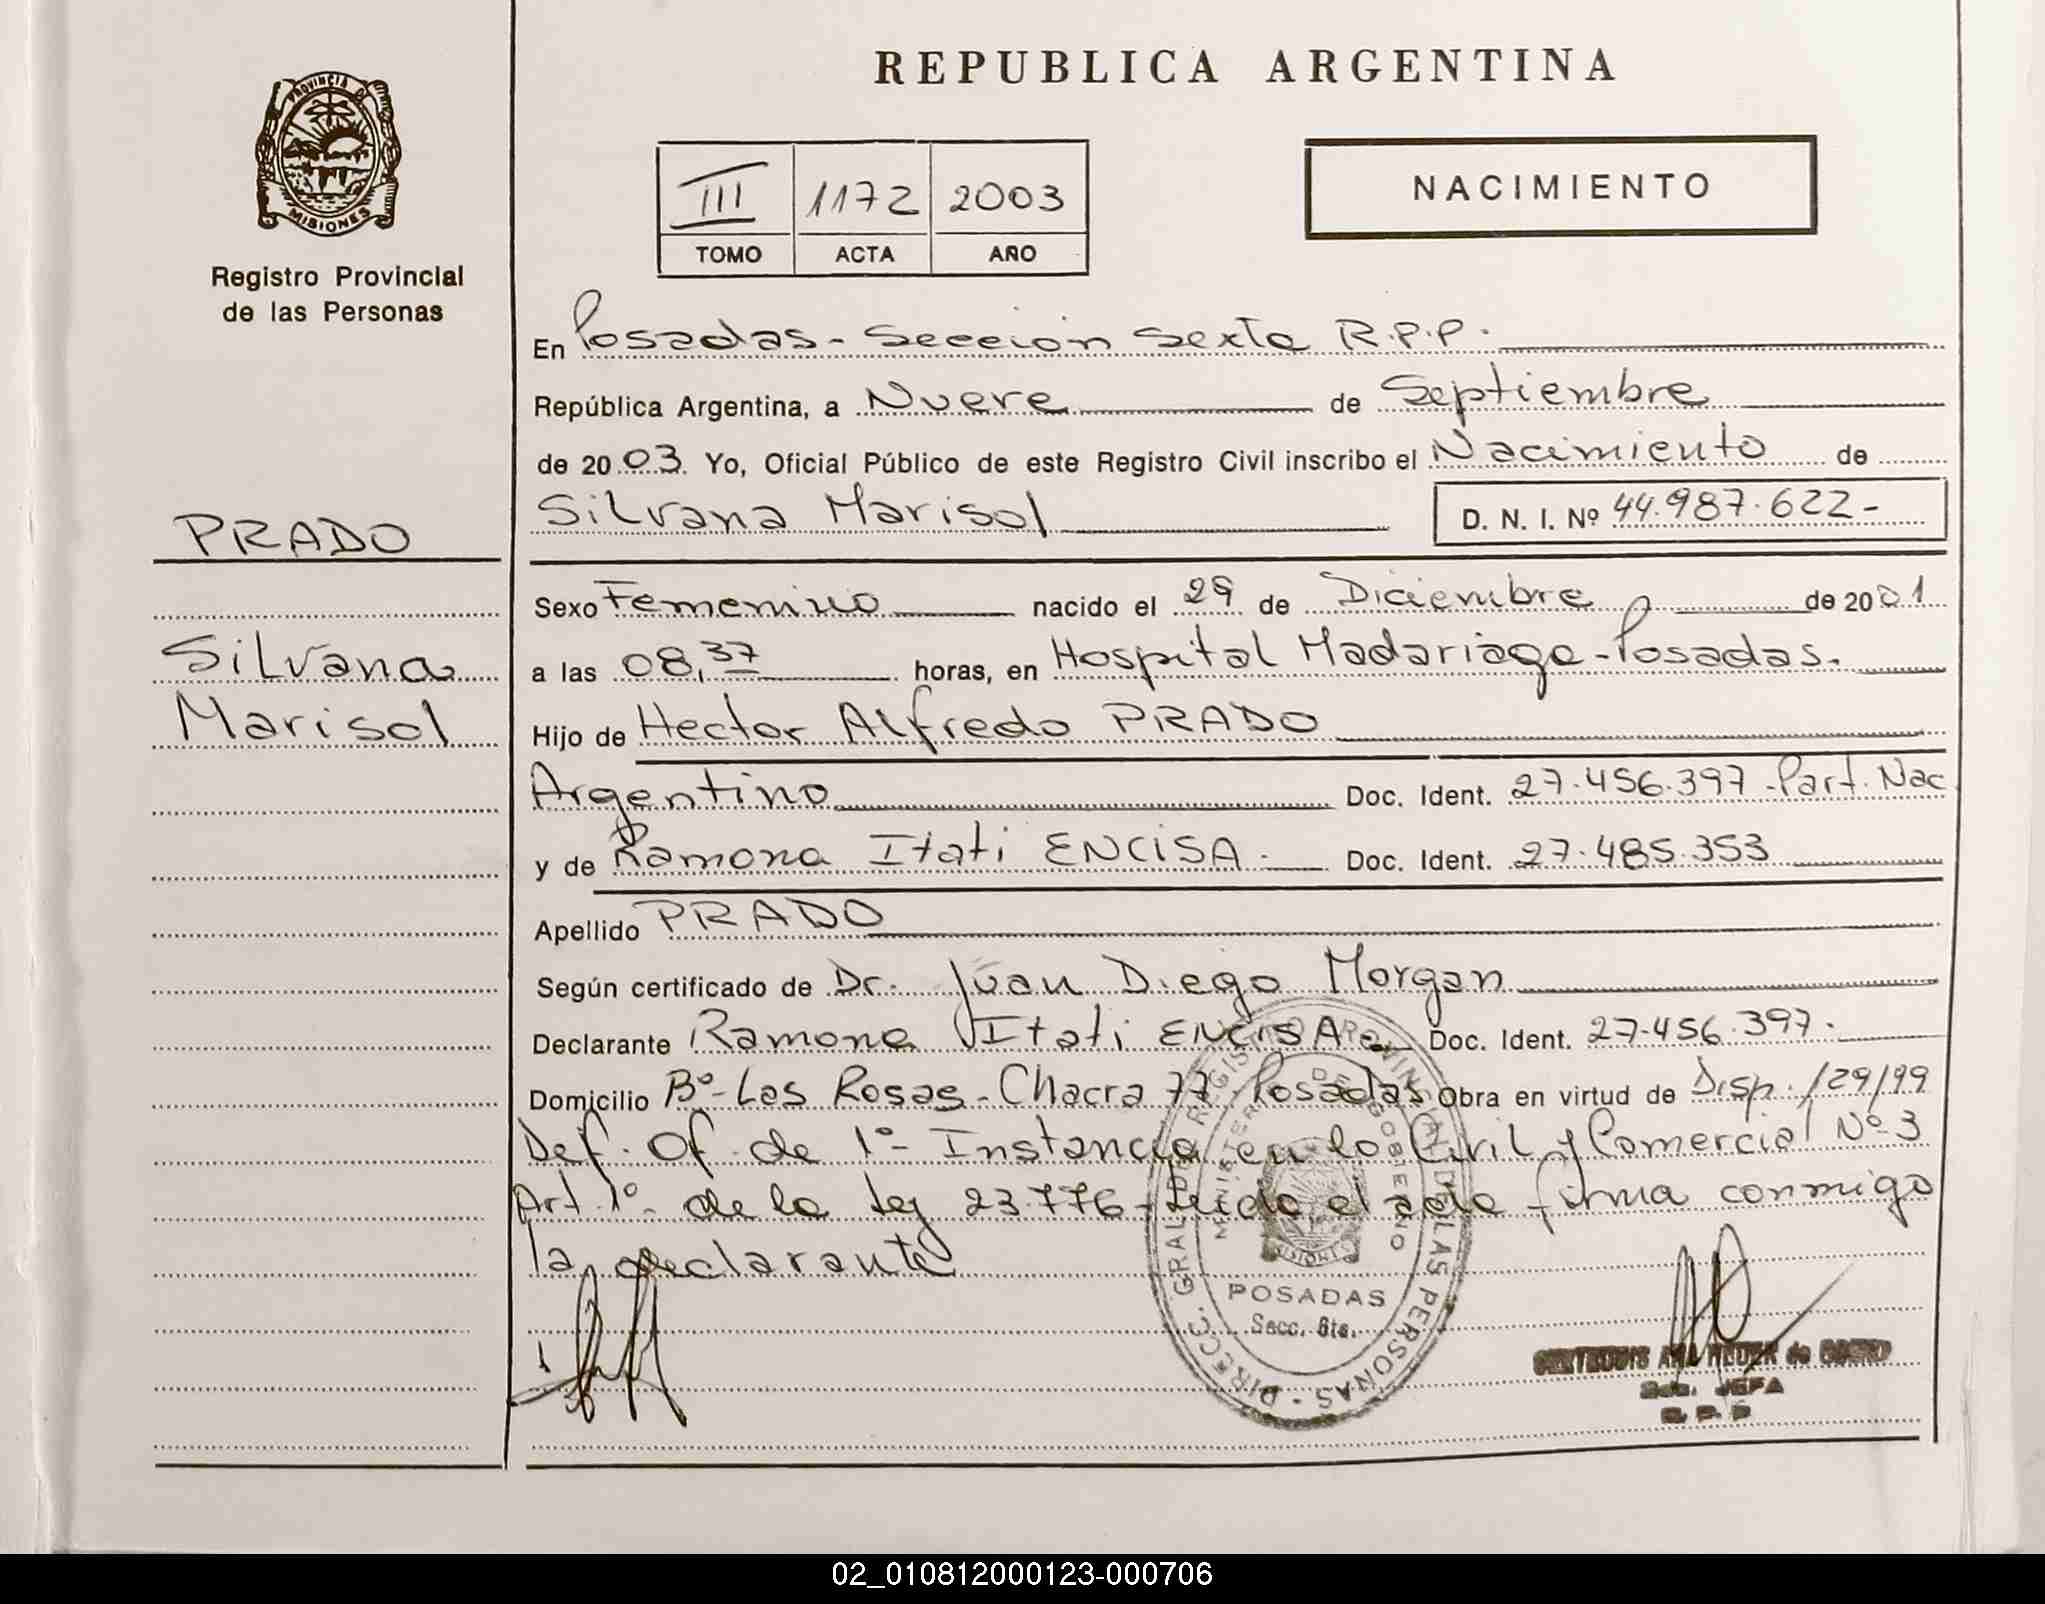 REPUBLICA ARGENTINA
PROVINCIA D
MISIONES
Registro Provincial
de las Personas
III 1172 2003
TOMO ACTA AÑO
NACIMIENTO
En Posadas - Seccion Sexta R.P.P.
República Argentina, a Nueve de Septiembre
de 2003. Yo, Oficial Público de este Registro Civil inscribo el Nacimiento de
Silvana Marisol D. N. I. Nº 44.987.622-
PRADO
Silvana
Marisol
Sexo Femenino nacido el 29 de Diciembre de 2001
a las 08,37 horas, en Hospital Madariaga - Posadas.
Hijo de Hector Alfredo PRADO
Argentino Doc. Ident. 27.456.397 - Part. Nac
y de Ramona Itati ENCISA. Doc. Ident. 27.485.353
Apellido PRADO
Según certificado de Dr. Juan Diego Morgan
Declarante Ramona Itati ENCISA Doc. Ident. 27.456.397.
Domicilio Bº - Las Rosas - Chacra 77 Posadas Obra en virtud de Disp. /29/99
Def. Of. de 1º - Instancia en lo Civil y Comercial Nº 3
Art. 1º. de la Ley 23.776 - Leido el acta firma conmigo
la declarante
DIRECC. GRAL. DEL REGISTRO PROVINCIAL DE LAS PERSONAS
MINISTERIO DE GOBIERNO
MISIONES
POSADAS
Secc. 6ta.
GERTRUDIS ANA
JEFA
02_010812000123-000706